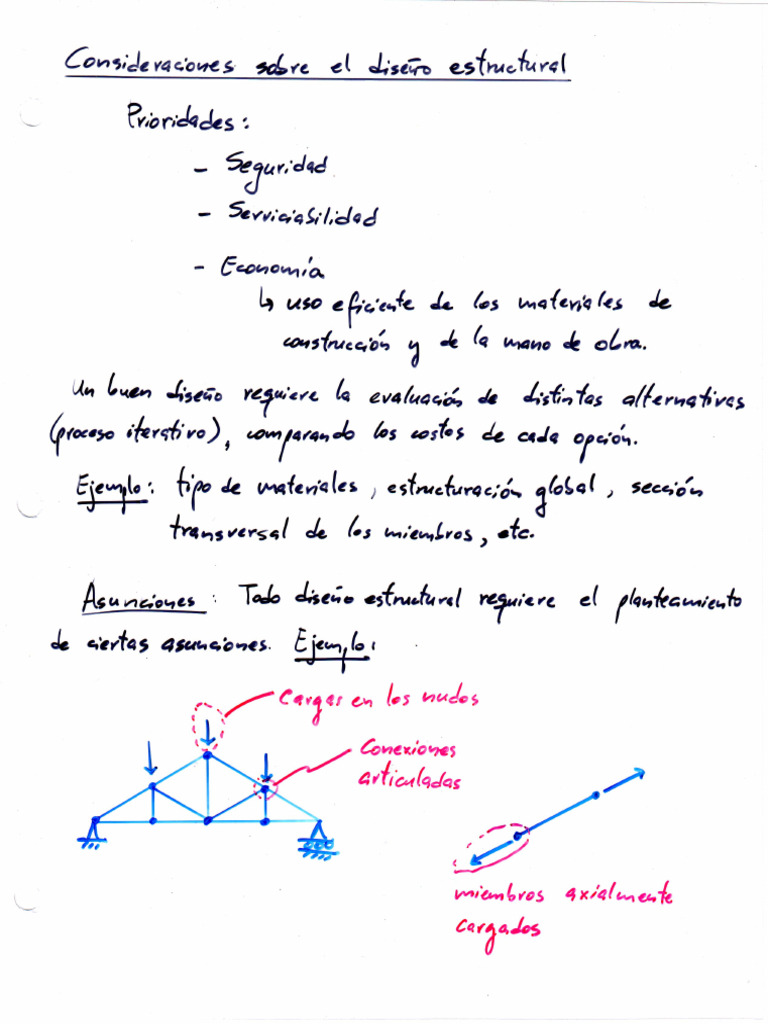 Consideraciones sobre el diseño estructural
Prioridades:
- Seguridad
- Serviciabilidad
- Economía
↳ uso eficiente de los materiales de
construcción y de la mano de obra.
Un buen diseño requiere la evaluación de distintas alternativas
(proceso iterativo), comparando los costos de cada opción.
Ejemplo: tipo de materiales, estructuración global, sección
transversal de los miembros, etc.
Asunciones: Todo diseño estructural requiere el planteamiento
de ciertas asunciones. Ejemplo:
Cargas en los nudos
Conexiones
articuladas
miembros axialmente
cargados